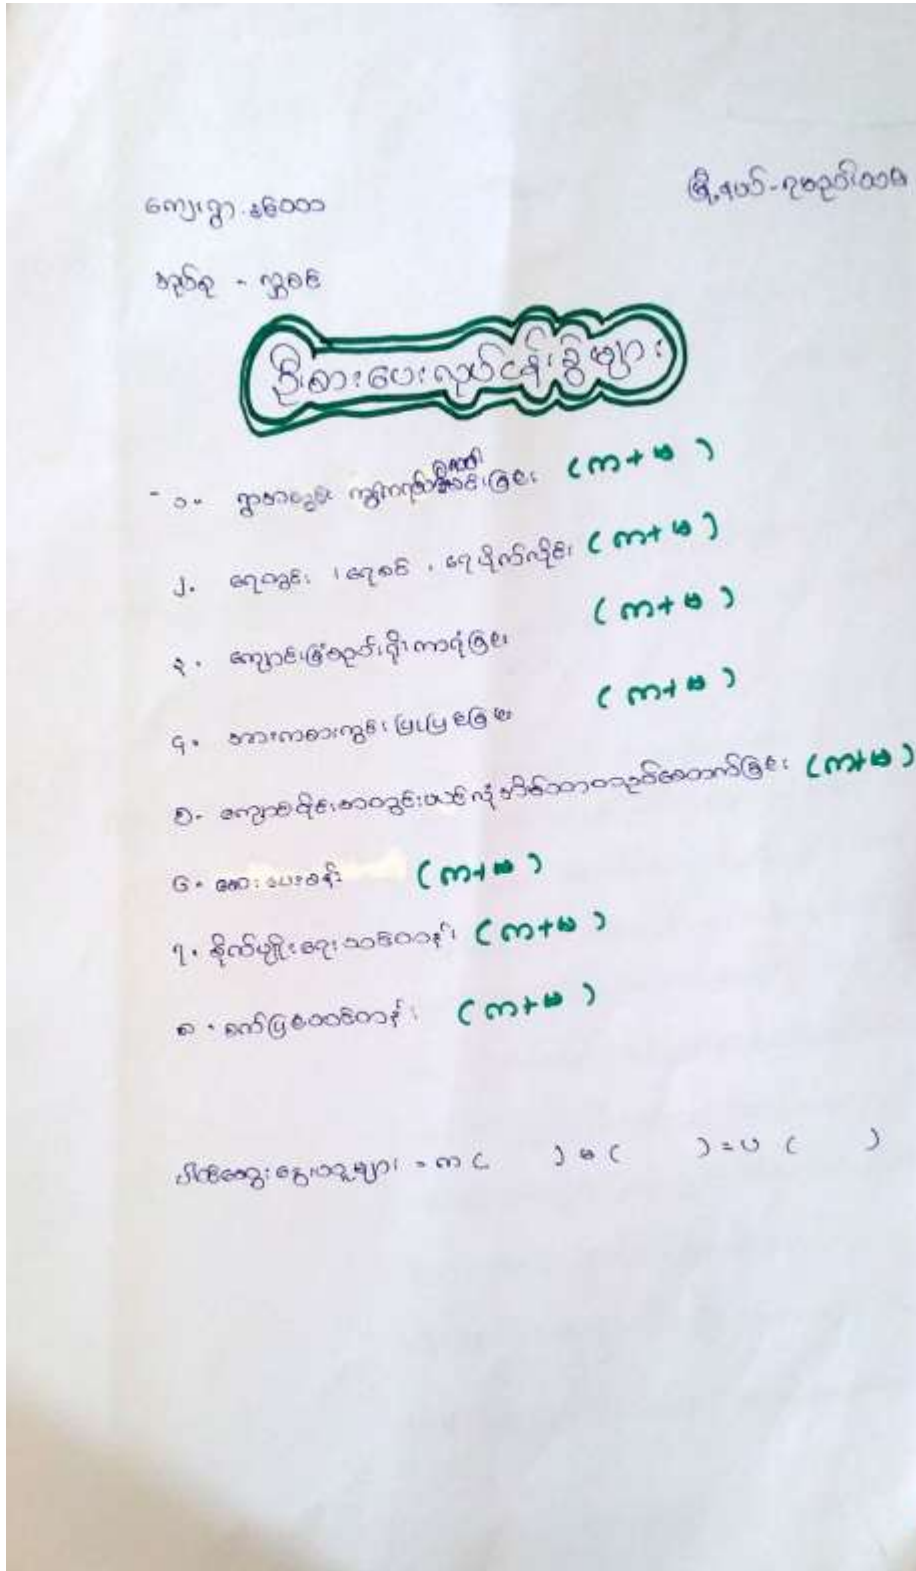 ကျေးရွာ - နမ်တော မြို့နယ် - ရမည်းသမ်
အုပ်စု - လွှစင်
ဦးစားပေးလုပ်ငန်းခွဲများ
၁။ ရွာစာတွင်း ကွန်ကရစ်လမ်းခင်းခြင်း (က+မ)
၂. ရေတွင်း ၊ ရေစင် ၊ ရေပိုက်လိုင်း (က+မ)
၃. ကျောင်းခြံစည်းရိုးကာရံခြင်း (က+မ)
၄. အားကစားကွင်းပြုပြင်ခြင်း (က+မ)
၅. (က+မ)
၆. ဆေးပေးခန်း (က+မ)
၇. စိုက်ပျိုးရေးသင်တန်း (က+မ)
၈. စက်ပြင်သင်တန်း (က+မ)
ပါဝင်ဆွေးနွေးသူများ = က ( ) မ ( ) = ပ ( )